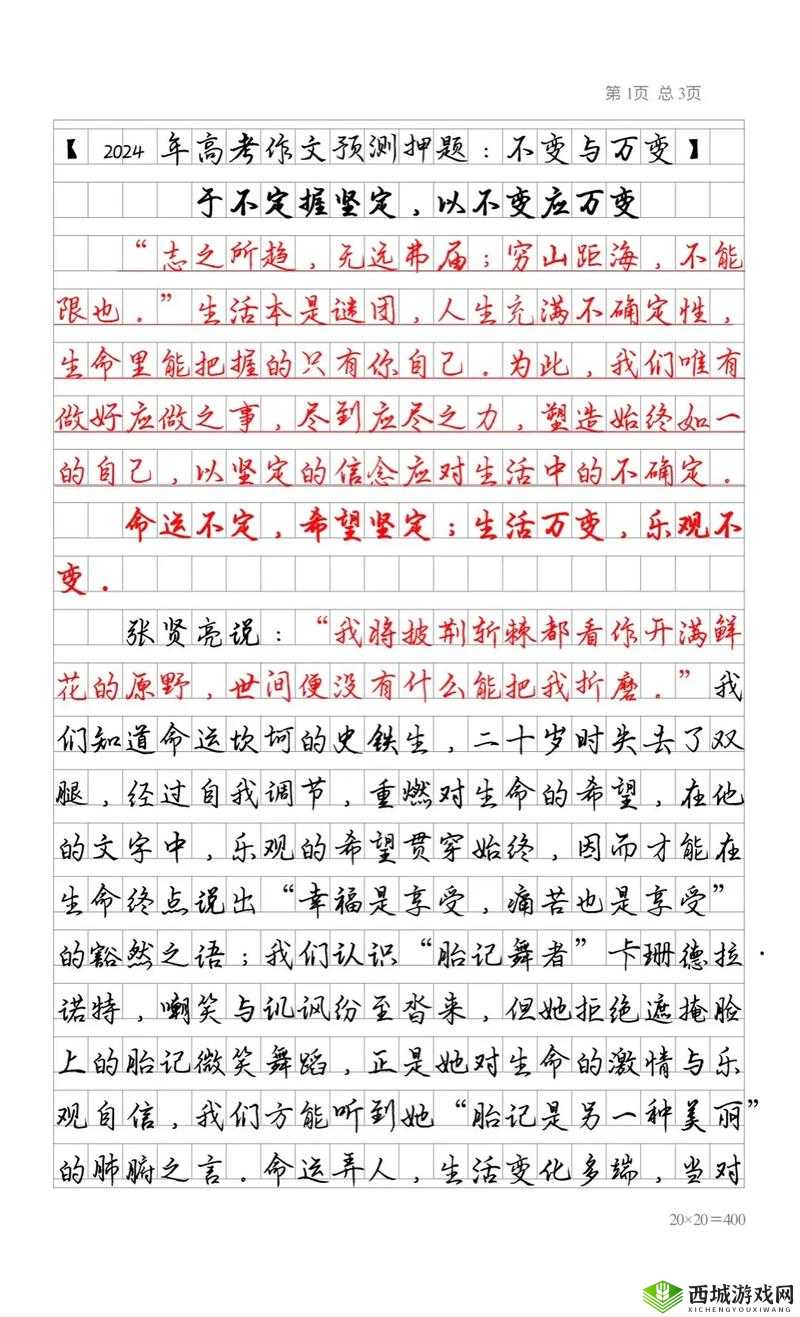 第1页 总3页
【 2024 年高考作文预测押题：不变与万变】
于不定握坚定，以不变应万变
“志之所趋，无远弗届；穷山距海，不能
限也．”生活本是谜团，人生充满不确定性，
生命里能把握的只有你自己．为此，我们唯有
做好应做之事，尽到应尽之力，塑造始终如一
的自己，以坚定的信念应对生活中的不确定．
命运不定，希望坚定；生活万变，乐观不
变．
张贤亮说：“我将披荆斩棘都看作开满鲜
花的原野，世间便没有什么能把我折磨．”我
们知道命运坎坷的史铁生，二十岁时失去了双
腿，经过自我调节，重燃对生命的希望，在他
的文字中，乐观的希望贯穿始终，因而才能在
生命终点说出“幸福是享受，痛苦也是享受”
的豁然之语；我们认识“胎记舞者”卡珊德拉·
诺特，嘲笑与讥讽纷至沓来，但她拒绝遮掩脸
上的胎记微笑舞蹈，正是她对生命的激情与乐
观自信，我们方能听到她“胎记是另一种美丽”
的肺腑之言．命运弄人，生活变化多端，当对
20×20＝400
西城游戏网
XICHENGYOUXIWANG